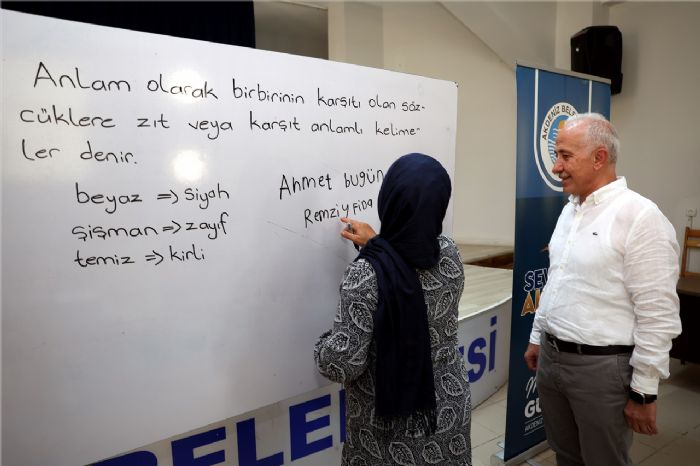 Anlam olarak birbirinin karşıtı olan söz-
cüklere zıt veya karşıt anlamlı kelime-
ler denir.
beyaz ⇒ siyah
şişman ⇒ zayıf
temiz ⇒ kirli
Ahmet bugün
Remziy FiDa
AKDENİZ BELE
SEV
BELE
İSİ
GÜ
AKDENİZ